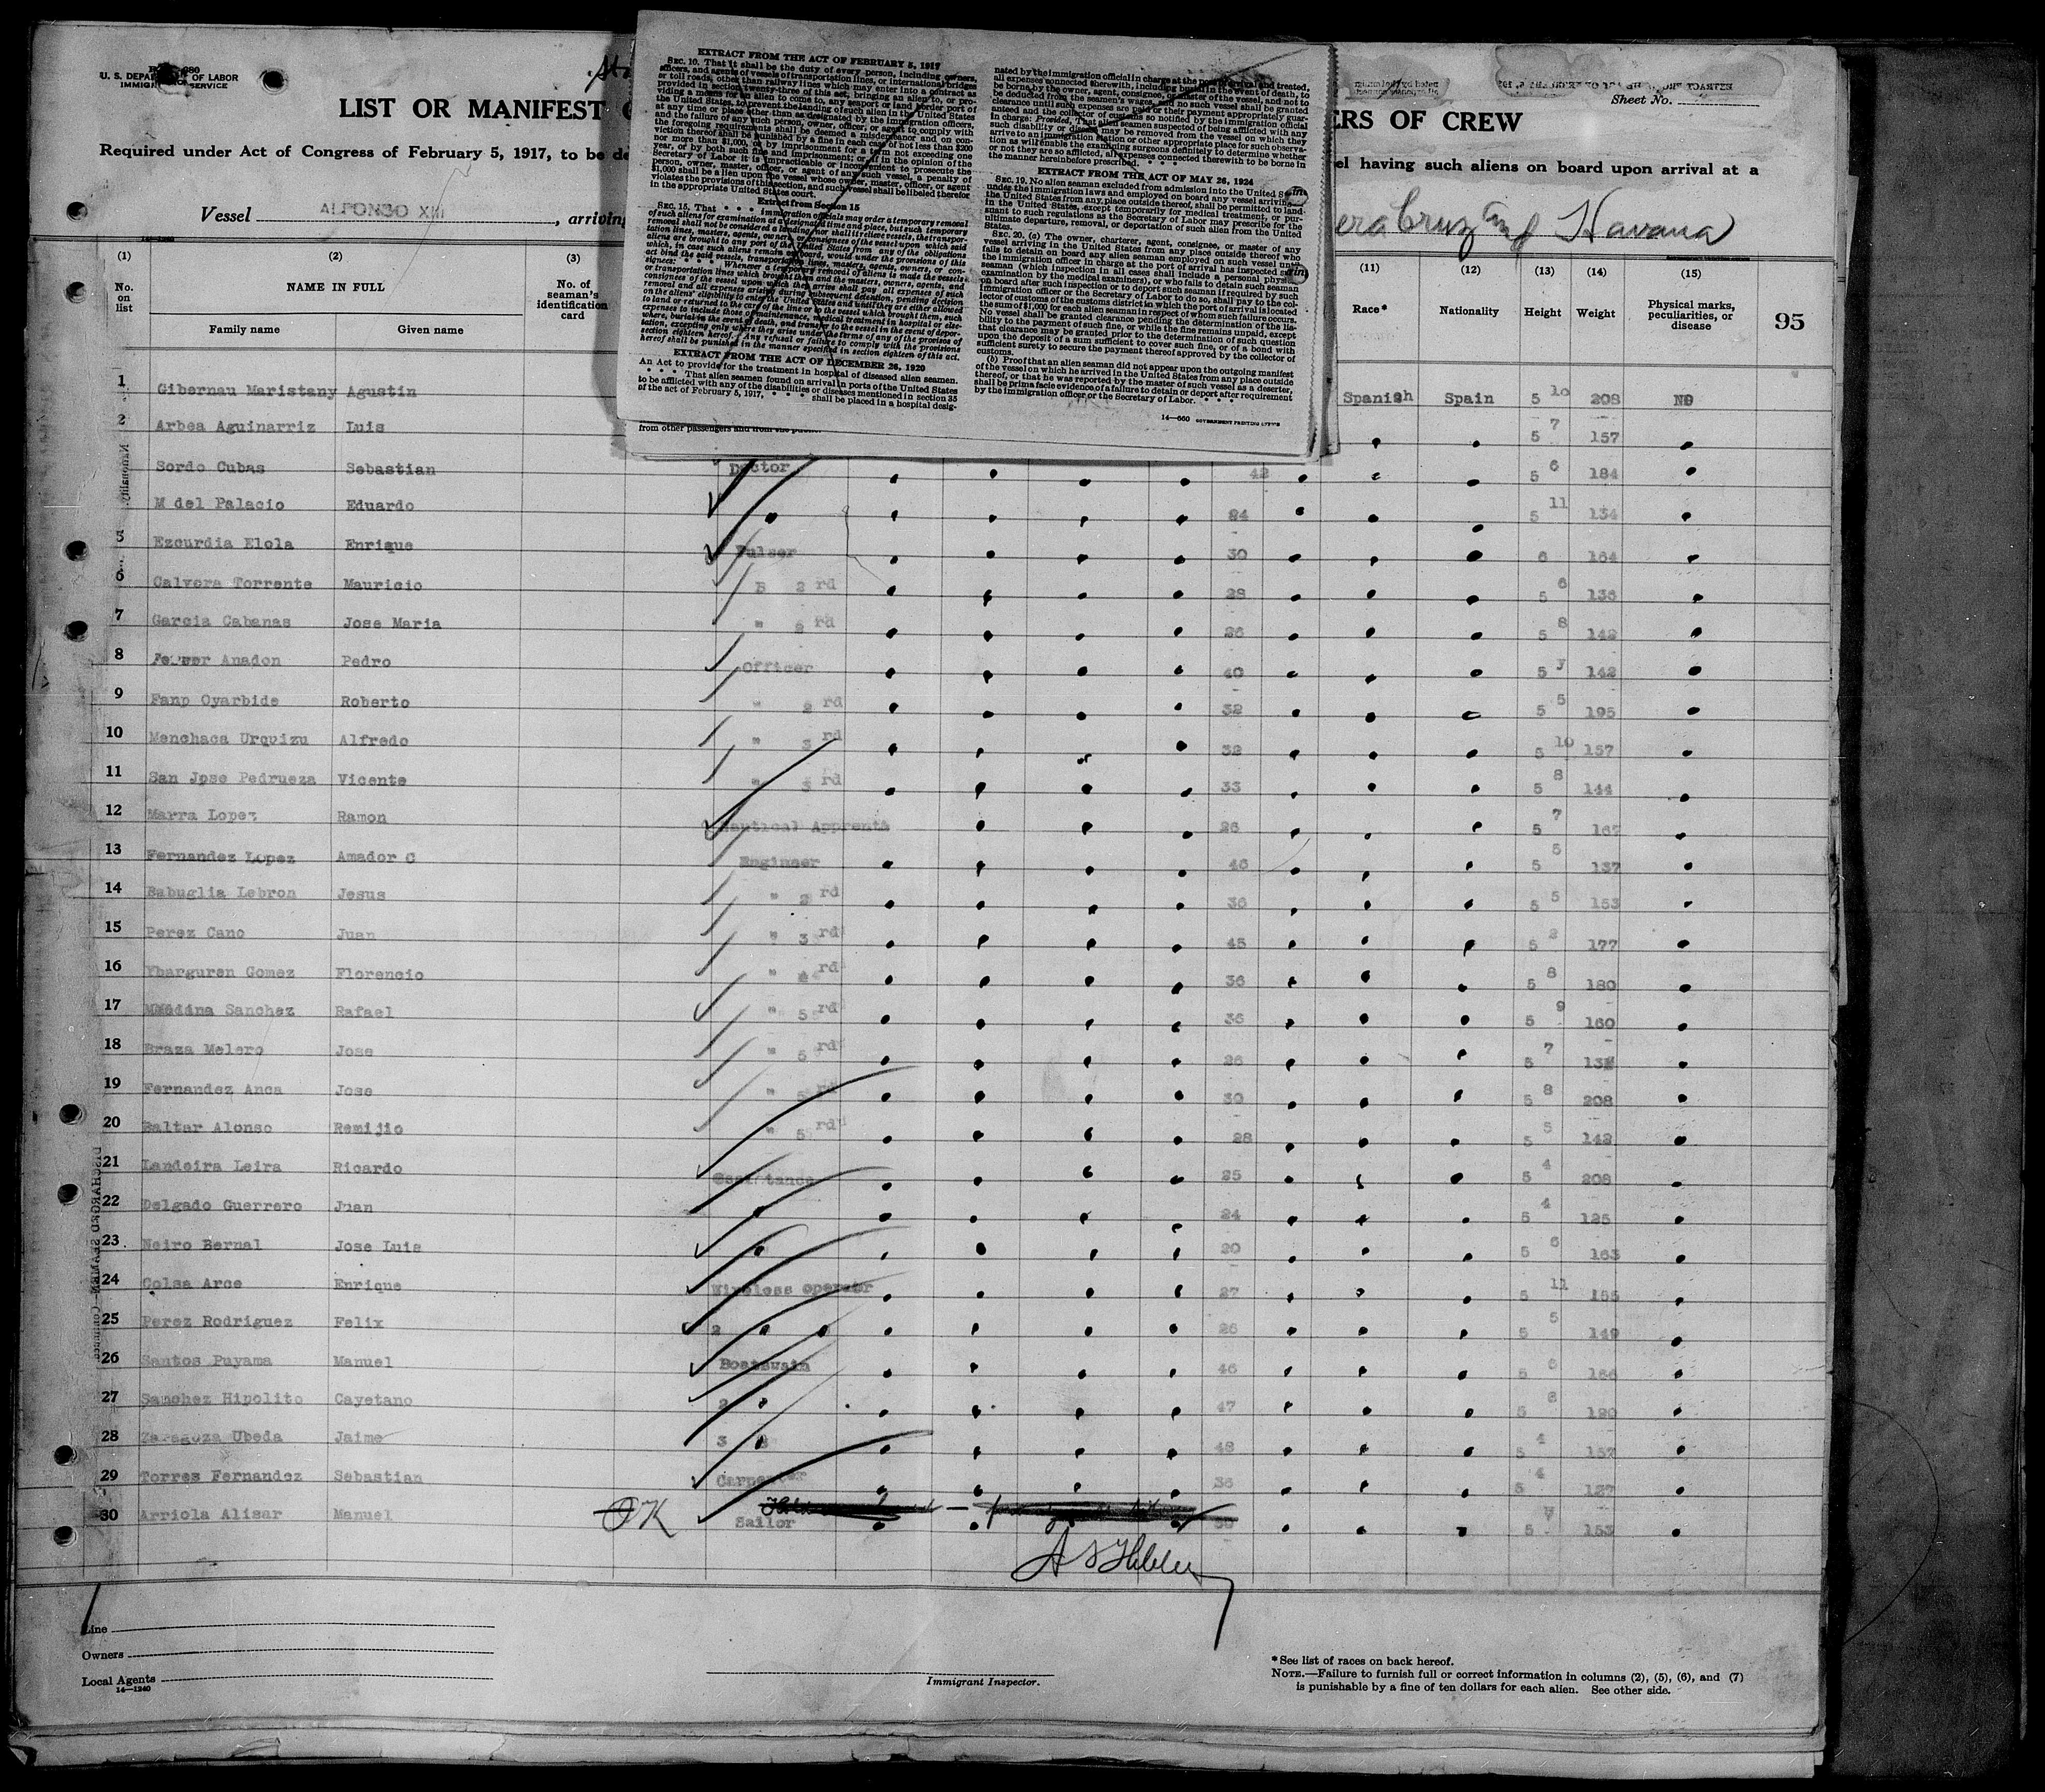 U. S. DEPARTMENT OF LABOR
IMMIGRATION SERVICE
LIST OR MANIFEST
ERS OF CREW
Sheet No.
Required under Act of Congress of February 5, 1917, to be de
el having such aliens on board upon arrival at a
Vessel ALFONSO XIII, arriving
era Cruz and Havana
EXTRACT FROM THE ACT OF FEBRUARY 5, 1917
SEC. 10. That it shall be the duty of every person, including owners,
officers, and agents of vessels of transportation lines, or international bridges
or toll roads, other than railway lines which may enter into a contract as
provided in section twenty-three of this act, bringing an alien to, or pro-
viding a means for an alien to come to, any seaport or land border port of
the United States, to prevent the landing of such alien in the United States
at any time or place other than as designated by the immigration officers,
and the failure of any such person, owner, officer, or agent to comply with
the foregoing requirements shall be deemed a misdemeanor and on con-
viction thereof shall be punished by a fine in each case of not less than $200
nor more than $1,000, or by imprisonment for a term not exceeding one
year, or by both such fine and imprisonment; or, if in the opinion of the
Secretary of Labor it is impracticable or inconvenient to prosecute the
person, owner, master, officer, or agent of any such vessel, a penalty of
$1,000 shall be a lien upon the vessel whose owner, master, officer, or agent
violates the provisions of this section, and such vessel shall be libeled therefor
in the appropriate United States court.
Extract from Section 15
SEC. 15. That * * * immigration officials may order a temporary removal
of such aliens for examination at a designated time and place, but such temporary
removal shall not be considered a landing, nor shall it relieve vessels, the transpor-
tation lines, masters, agents, owners, or consignees of the vessel upon which said
aliens are brought to any port of the United States from any of the obligations
which, in case such aliens remain on board, would under the provisions of this
act bind the said vessels, transportation lines, masters, agents, owners, or con-
signees: * * * Whenever a temporary removal of aliens is made the vessels
or transportation lines which brought them and the masters, owners, agents, and
consignees of the vessel upon which they arrive shall pay all expenses of such
removal and all expenses arising during subsequent detention, pending decision
on the aliens' eligibility to enter the United States and until they are either allowed
to land or returned to the care of the line or to the vessel which brought them, such
expenses to include those of maintenance, medical treatment in hospital or else-
where, burial in the event of death, and transfer to the vessel in the event of depor-
tation, excepting only where they arise under the terms of any of the provisos of
section eighteen hereof. Any refusal or failure to comply with the provisions
hereof shall be punished in the manner specified in section eighteen of this act.
EXTRACT FROM THE ACT OF DECEMBER 26, 1920
An Act to provide for the treatment in hospital of diseased alien seamen.
* * * That alien seamen found on arrival in ports of the United States
to be afflicted with any of the disabilities or diseases mentioned in section 35
of the act of February 5, 1917, * * * shall be placed in a hospital desig-
nated by the immigration official in charge at the port of arrival and treated,
all expenses connected therewith, including burial in the event of death, to
be borne by the owner, agent, consignee, or master of the vessel, and not to
be deducted from the seamen's wages, and no such vessel shall be granted
clearance until such expenses are paid or their payment appropriately guar-
anteed and the collector of customs so notified by the immigration official
in charge: Provided, That alien seamen suspected of being afflicted with any
such disability or disease may be removed from the vessel on which they
arrive to an immigration station or other appropriate place for such observa-
tion as will enable the examining surgeons definitely to determine whether
or not they are so afflicted, all expenses connected therewith to be borne in
the manner hereinbefore prescribed. * * *
EXTRACT FROM THE ACT OF MAY 26, 1924
SEC. 19. No alien seaman excluded from admission into the United States
under the immigration laws and employed on board any vessel arriving in
the United States from any place outside thereof, shall be permitted to land in
the United States, except temporarily for medical treatment, or pur-
suant to such regulations as the Secretary of Labor may prescribe for the
ultimate departure, removal, or deportation of such alien from the United
States.
SEC. 20. (a) The owner, charterer, agent, consignee, or master of any
vessel arriving in the United States from any place outside thereof who
fails to detain on board any alien seaman employed on such vessel until
the immigration officer in charge at the port of arrival has inspected such
seaman (which inspection in all cases shall include a personal physical
examination by the medical examiners), or who fails to detain such seaman
on board after such inspection or to deport such seaman if required by such
immigration officer or the Secretary of Labor to do so, shall pay to the col-
lector of customs of the customs district in which the port of arrival is located
the sum of $1,000 for each alien seaman in respect of whom such failure occurs.
No vessel shall be granted clearance pending the determination of the lia-
bility to the payment of such fine, or while the fine remains unpaid, except
that clearance may be granted prior to the determination of such question
upon the deposit of a sum sufficient to cover such fine, or of a bond with
sufficient surety to secure the payment thereof approved by the collector of
customs.
(b) Proof that an alien seaman did not appear upon the outgoing manifest
of the vessel on which he arrived in the United States from any place outside
thereof, or that he was reported by the master of such vessel as a deserter,
shall be prima facie evidence of a failure to detain or deport after requirement
by the immigration officer or the Secretary of Labor. * * *
14—660 GOVERNMENT PRINTING OFFICE
from other passengers and from the public
(1) (2) (3) (11) (12) (13) (14) (15)
No. on list NAME IN FULL No. of seaman's identification card Race* Nationality Height Weight Physical marks, peculiarities, or disease 95
Family name Given name
1 Gibernau Maristany Agustin Spanish Spain 5 10 208 NO
2 Arbea Aguinarriz Luis 5 7 157
Sordo Cubas Sebastian Doctor 42 5 6 184
M del Palacio Eduardo 24 5 11 134
5 Ezcurdia Elola Enrique Pulser 30 6 164
6 Calvera Torrente Mauricio P 2 rd 28 5 6 136
7 Garcia Cabanas Jose Maria " 2 rd 26 5 8 142
8 Ferrer Anadon Pedro Officer 40 5 7 142
9 Fanp Oyarbide Roberto " 2 rd 32 5 5 195
10 Menchaca Urquizu Alfredo " 3 rd 32 5 10 157
11 San Jpse Pedrueza Vicente " 3 rd 33 5 8 144
12 Marra Lopez Ramon Nautical Apprenta 26 5 7 167
13 Fernandez Lopez Amador C Engineer 46 5 5 137
14 Babuglia Lebron Jesus " 2 rd 36 5 5 153
15 Perez Cano Juan " 3 rd 45 5 2 177
16 Ybarguren Gomez Florencio " 4 rd 36 5 8 180
17 Medina Sanchez Rafael " 5 rd 36 5 9 160
18 Braza Melero Jose " 5 rd 26 5 7
19 Fernandez Anca Jose " rd 30 5 8 208
20 Baltar Alonso Remijio " 5 rd 28 5 5 142
21 Landeira Leira Ricardo 25 5 4 208
22 Delgado Guerrero Juan 24 5 4 125
23 Neiro Bernal Jose Luis 20 5 6 163
24 Colsa Arce Enrique Wireless operator 27 5 11 155
25 Perez Rodriguez Felix 2 26 5 5 149
26 Santos Puyama Manuel Boatswain 46 5 6 166
27 Sanchez Hipolito Cayetano 2 47 5 6 120
28 Zaragoza Ubeda Jaime 3 48 5 4 157
29 Torres Fernandez Sebastian Carpenter 36 5 4 127
30 Arriola Alisar Manuel OK Sailor 5 153
DISCHARGED SEAMEN—Continued
Line
Owners
Local Agents
14—1240
Immigrant Inspector.
*See list of races on back hereof.
NOTE.—Failure to furnish full or correct information in columns (2), (5), (6), and (7)
is punishable by a fine of ten dollars for each alien. See other side.